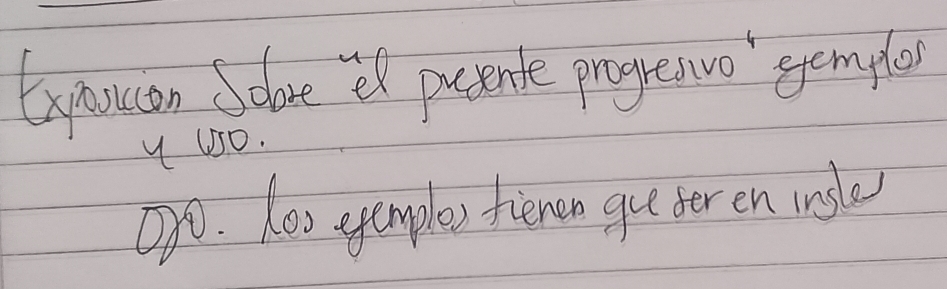 Exposición Sobre "el presente progresivo" ejemplos
y uso.
OJO. Los ejemplos tienen que ser en ingles